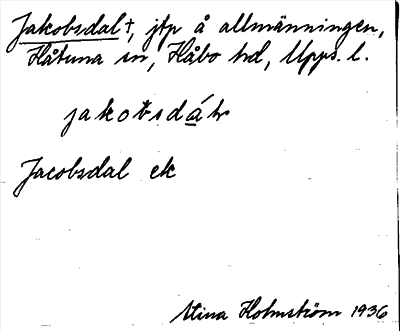 Jakobsdal †, jtp å allmänningen,
Håtuna sn, Håbo hd, Upps. l.
jakobsdáł
Jacobsdal ek
Stina Holmström 1936